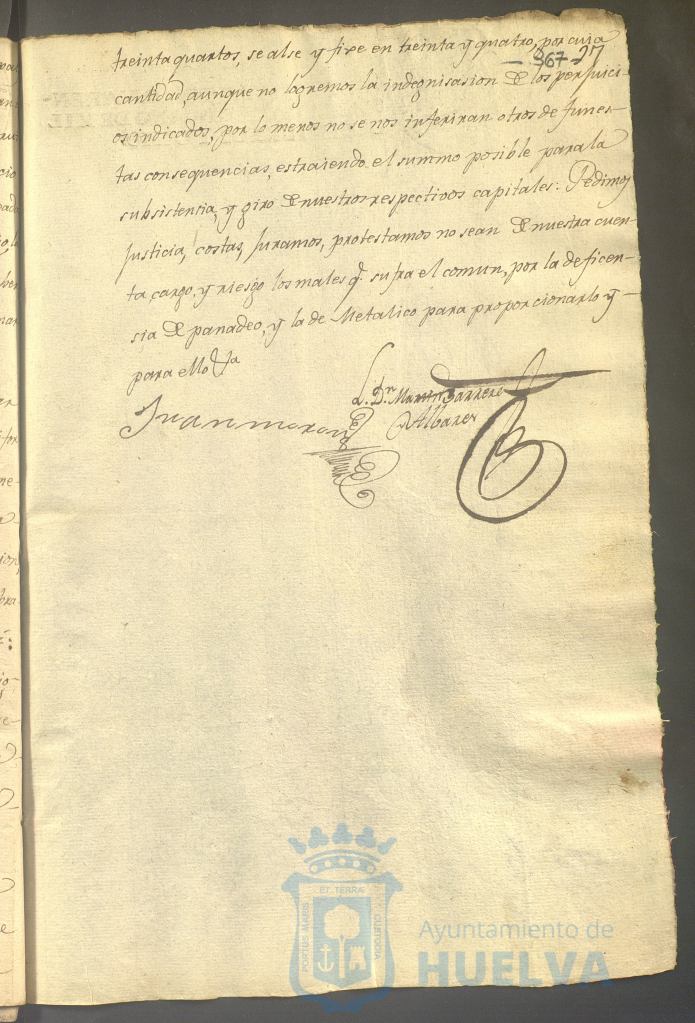 treinta quartos, se alse y fixe en treinta y quatro, por cuia
- 367- 27
cantidad, aunque no logremos la indegnisasion de los perjuici-
os indicados, por lo menos no se nos inferiran otros de funes-
tas consequencias, estraiendo el summo posible para la
subsistencia, y giro de nuestros respectivos capitales: Pedimos
Justicia, costas, Juramos, protestamos no sean de nuestra cuen-
ta, cargo, y riesgo los males q.e sufra el comun, por la deficen-
sia de panadeo, y la de Metalico para proporcionarlo y
para ello Va
L. Dn Martin Barrera
Albarez
Juan
PORTUS MARIS ET TERRÆ CUSTODIA
Ayuntamiento de
HUELVA